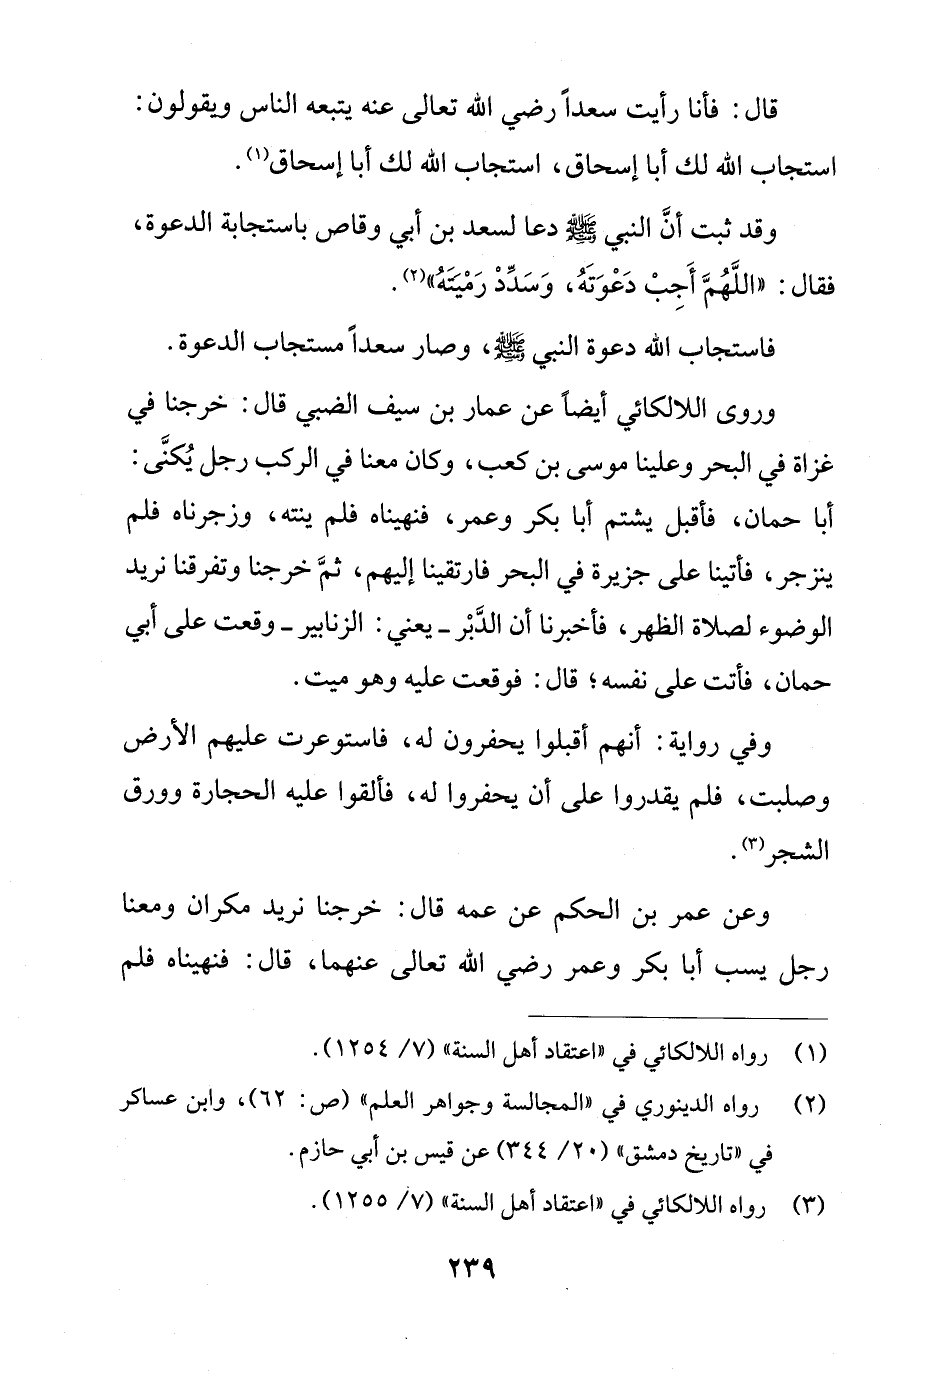 قال: فأنا رأيت سعداً رضي الله تعالى عنه يتبعه الناس ويقولون:
استجاب الله لك أبا إسحاق، استجاب الله لك أبا إسحاق(١).
وقد ثبت أنَّ النبي ﷺ دعا لسعد بن أبي وقاص باستجابة الدعوة،
فقال: «اللَّهُمَّ أَجِبْ دَعْوَتَهُ، وَسَدِّدْ رَمْيَتَهُ»(٢).
فاستجاب الله دعوة النبي ﷺ، وصار سعداً مستجاب الدعوة.
وروى اللالكائي أيضاً عن عمار بن سيف الضبي قال: خرجنا في
غزاة في البحر وعلينا موسى بن كعب، وكان معنا في الركب رجل يُكنَّى:
أبا حمان، فأقبل يشتم أبا بكر وعمر، فنهيناه فلم ينته، وزجرناه فلم
ينزجر، فأتينا على جزيرة في البحر فارتقينا إليهم، ثمَّ خرجنا وتفرقنا نريد
الوضوء لصلاة الظهر، فأخبرنا أن الدَّبْر ـ يعني: الزنابير ـ وقعت على أبي
حمان، فأتت على نفسه؛ قال: فوقعت عليه وهو ميت.
وفي رواية: أنهم أقبلوا يحفرون له، فاستوعرت عليهم الأرض
وصلبت، فلم يقدروا على أن يحفروا له، فألقوا عليه الحجارة وورق
الشجر(٣).
وعن عمر بن الحكم عن عمه قال: خرجنا نريد مكران ومعنا
رجل يسب أبا بكر وعمر رضي الله تعالى عنهما، قال: فنهيناه فلم
(١) رواه اللالكائي في «اعتقاد أهل السنة» (٧/ ١٢٥٤).
(٢) رواه الدينوري في «المجالسة وجواهر العلم» (ص: ٦٢)، وابن عساكر
في «تاريخ دمشق» (٢٠/ ٣٤٤) عن قيس بن أبي حازم.
(٣) رواه اللالكائي في «اعتقاد أهل السنة» (٧/ ١٢٥٥).
٢٣٩